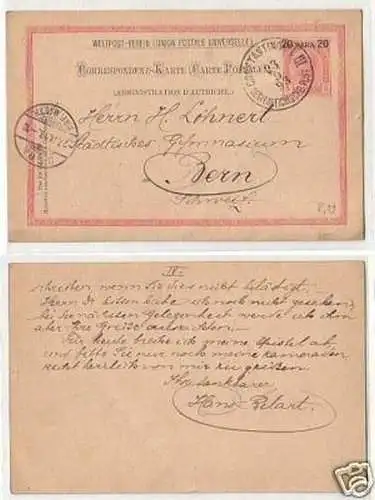 WELTPOST-VEREIN (UNION POSTALE UNIVERSELLE)
20 PARA 20
CORRESPONDENZ-KARTE (CARTE POSTALE)
(ADMINISTRATION D'AUTRICHE)
CONSTANTINOPEL III
Herrn H. Löhnert
Städtisches Gymnasium
Bern
Schweiz
IV.
schreiben, wenn Sie dies nicht belästigt.
Herrn Dr. habe ich noch nicht gesehen,
bei nächster Gelegenheit werde ich ihm
aber Ihre Grüße
Für heute breche ich meine Epistel ab,
und bitte Sie nur noch meine Kameraden
recht herzlich von mir zu grüßen.
Ihr dankbarer
Hans Belart.